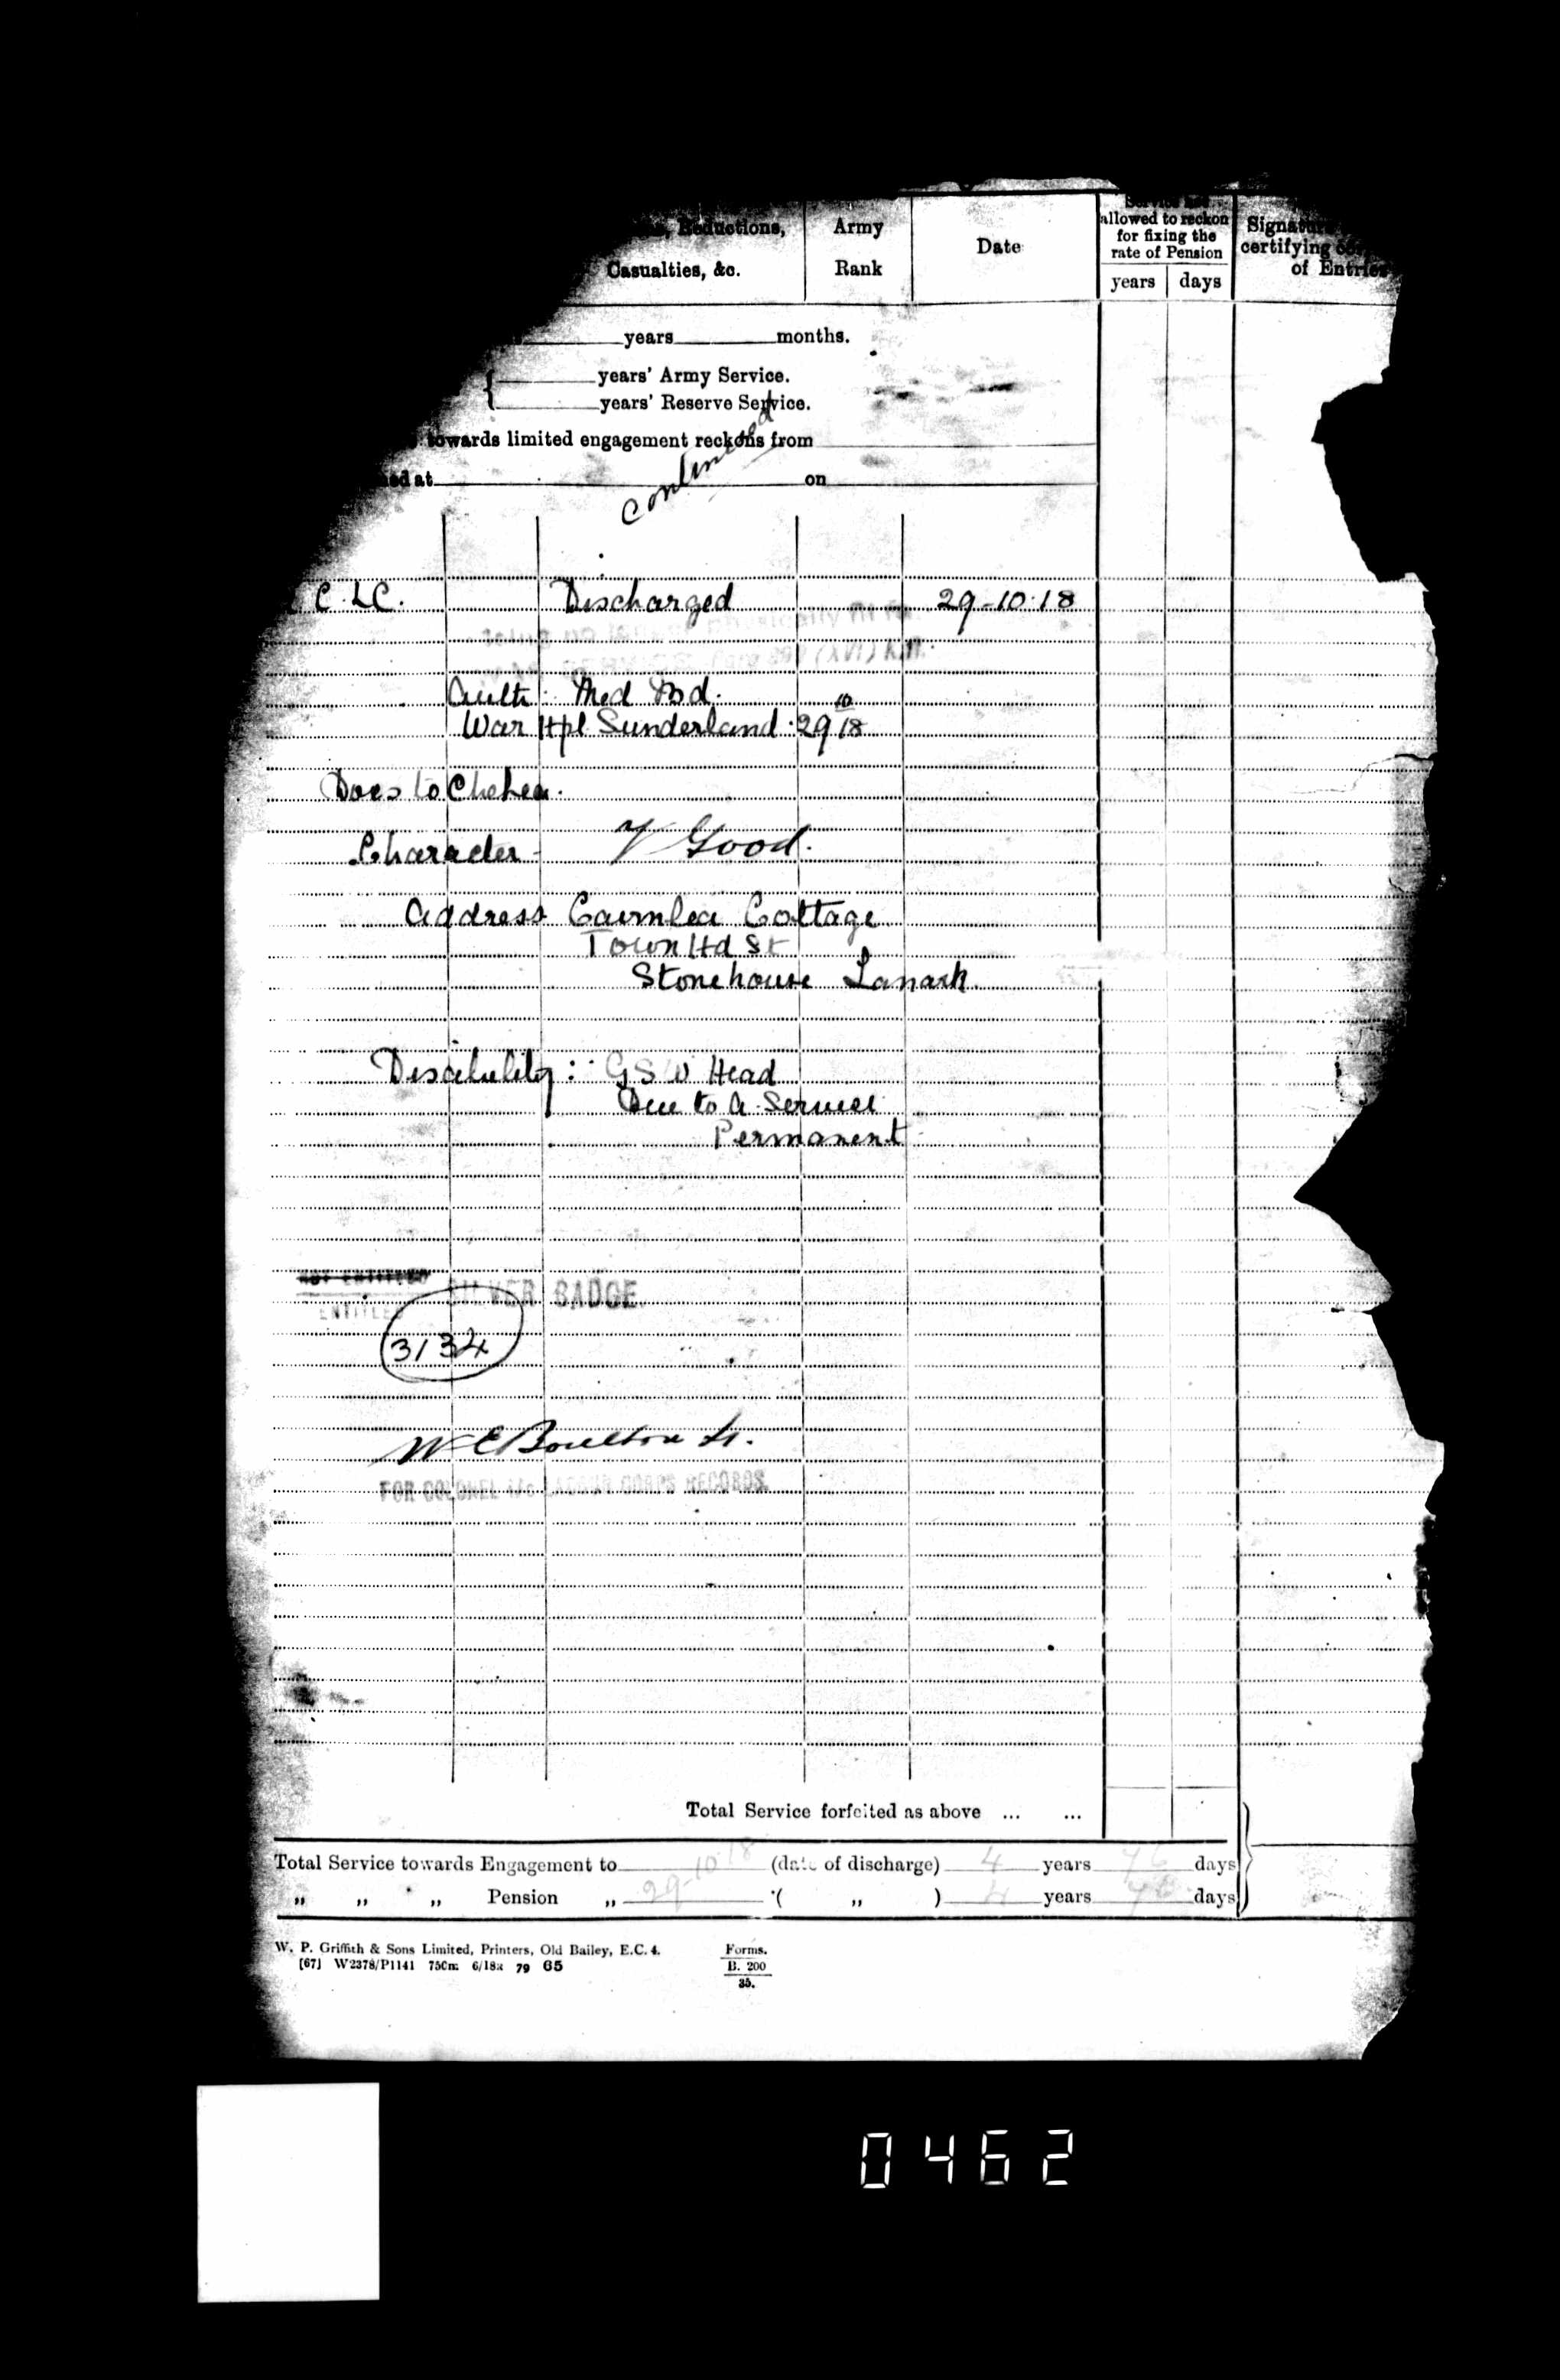 Reductions, Army Date allowed to reckon
Casualties, &c. Rank for fixing the certifying
rate of Pension of Entries
years days
years months.
years' Army Service.
years' Reserve Service.
towards limited engagement reckons from
continued
at on
C. LC. Discharged 29-10-18
Auth: Med Bd.
War Hpl Sunderland. 29 10/18
Docs to Chelsea.
Character - V Good.
Address Cairnlea Cottage
Town Hd St
Stonehouse Lanark.
Disability: GSW Head
Due to A. Service
Permanent
NOT ENTITLED SILVER BADGE
ENTITLED
3134
W E Boulton Lt.
FOR COLONEL i/c LABOUR CORPS RECORDS.
Total Service forfeited as above ... ...
Total Service towards Engagement to (date of discharge) 4 years 76 days
„ „ „ Pension „ 29-10-18 ( „ ) 4 years 76 days
W. P. Griffith & Sons Limited, Printers, Old Bailey, E.C.4. Forms.
[67] W2378/P1141 750m 6/18 79 65 B. 200
35.
0462